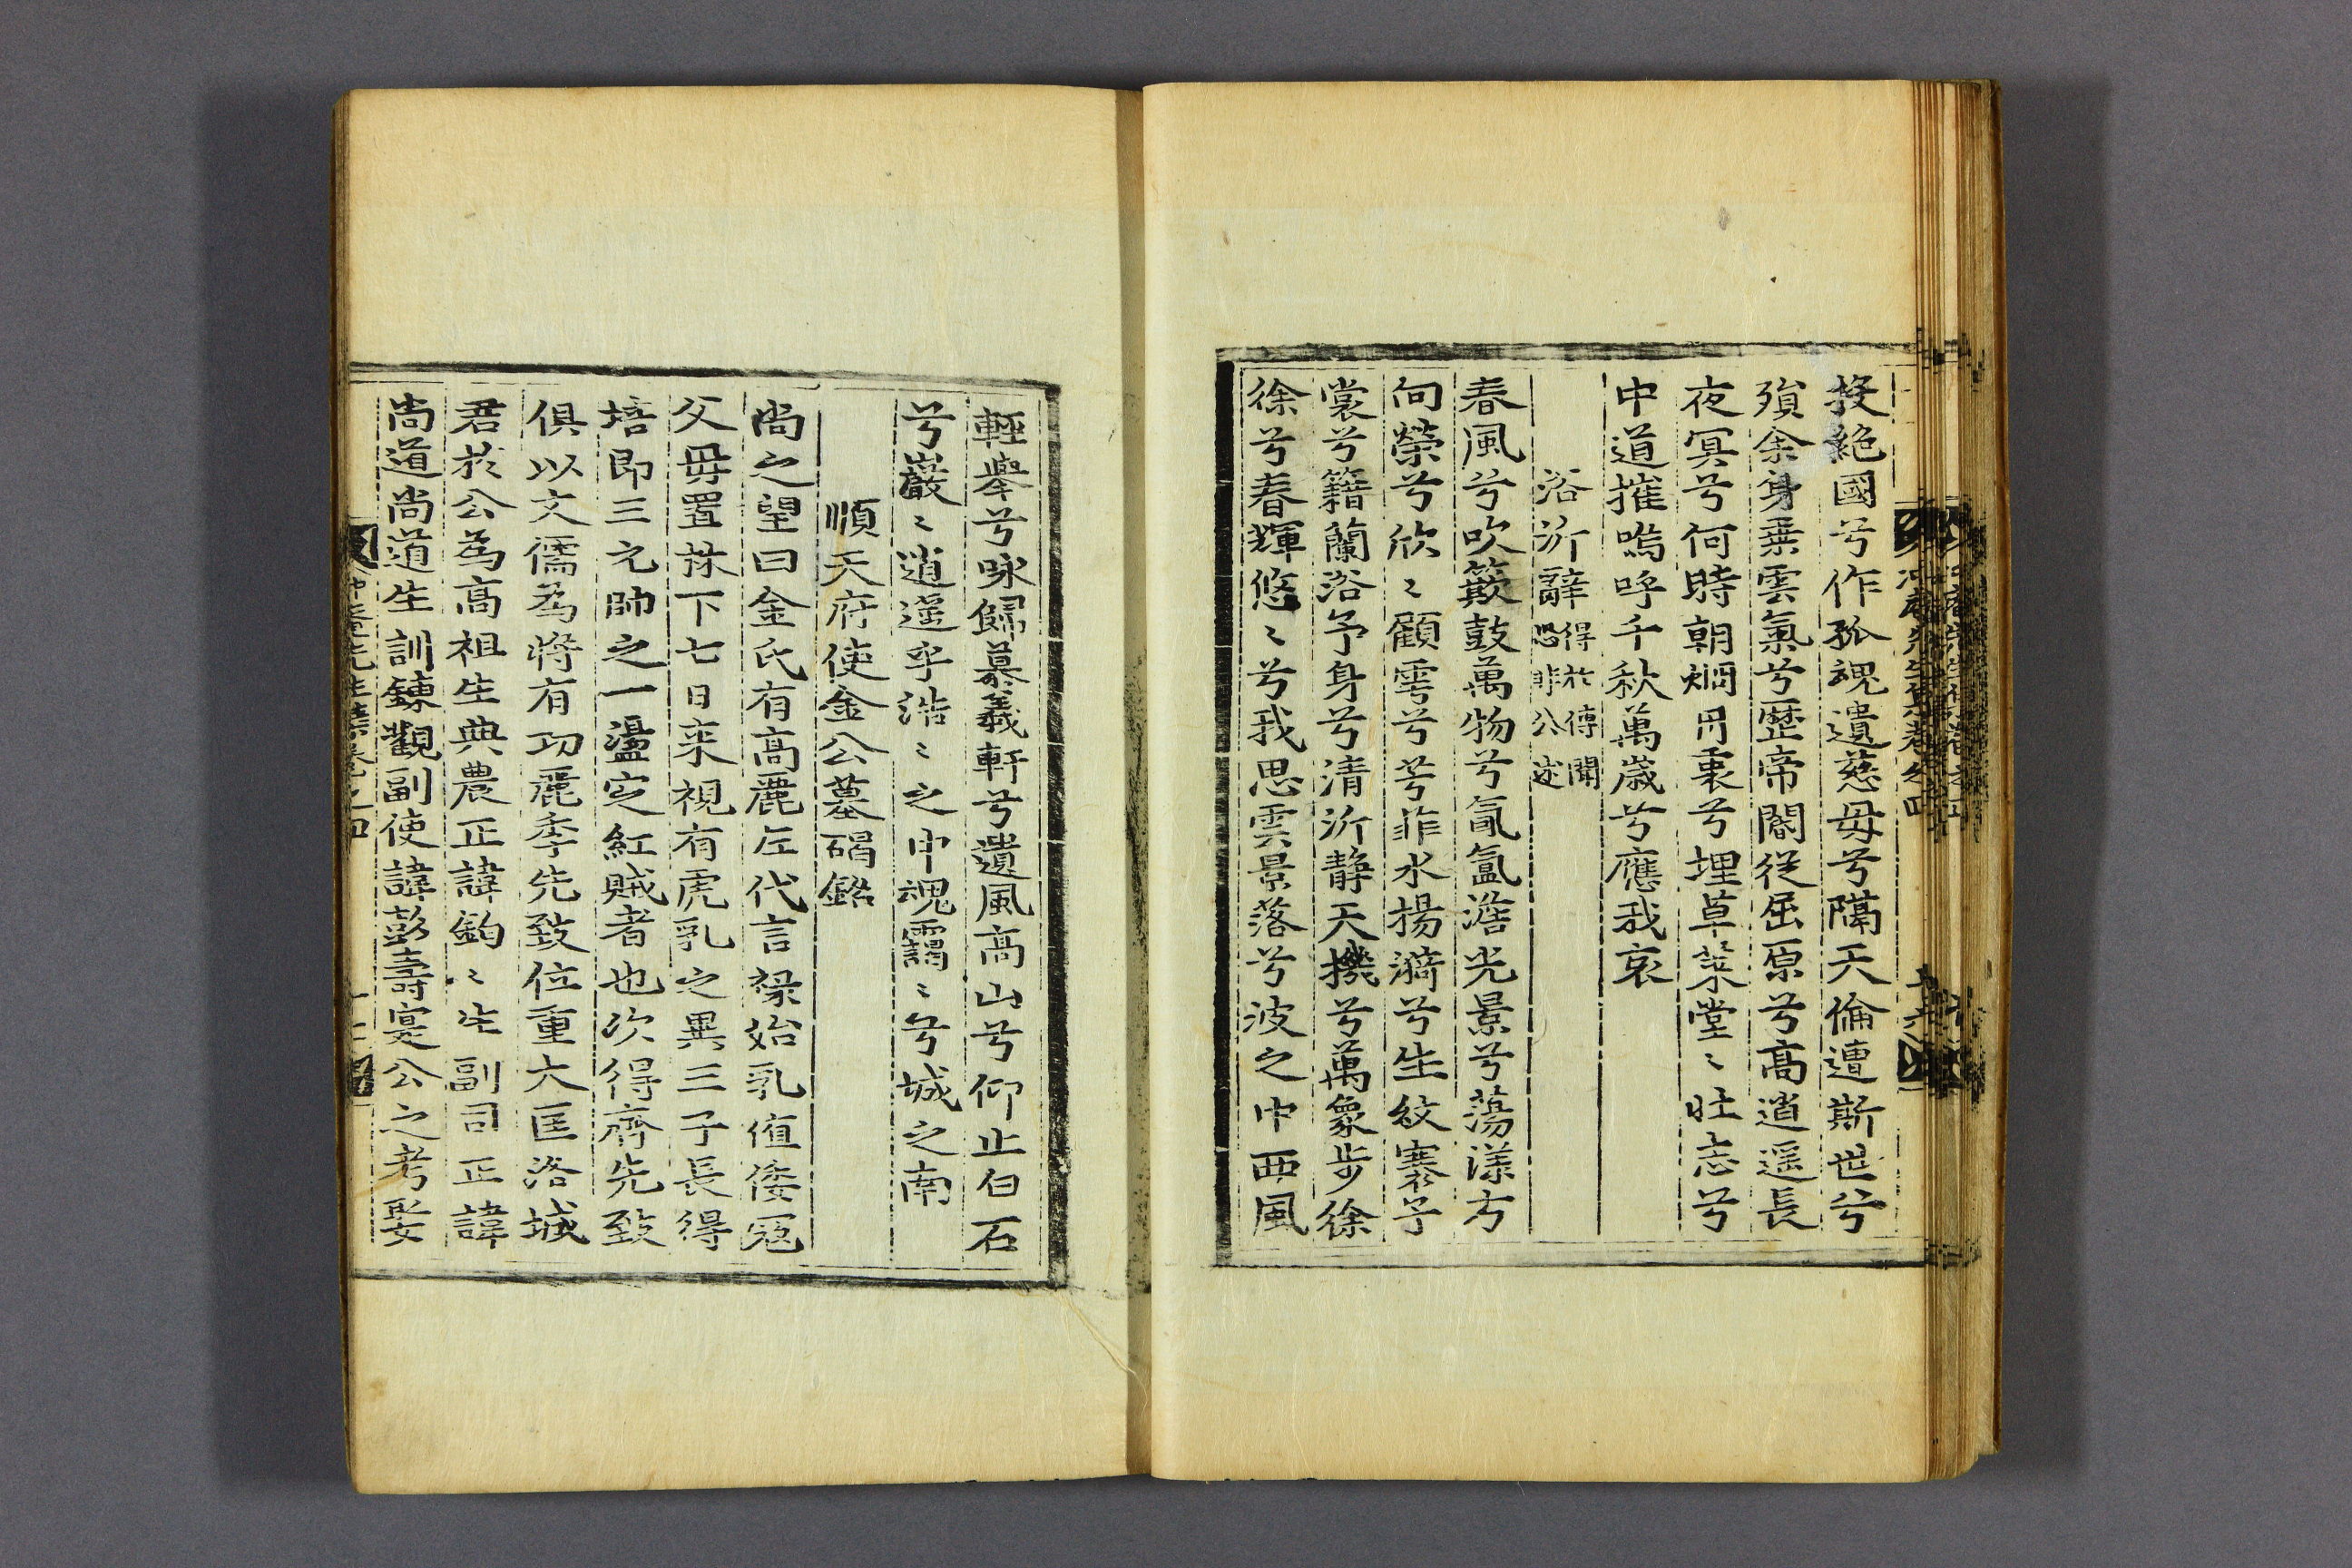 投絶國兮作孤魂遺慈母兮隔天倫遭斯世兮
殞余身乗雲氣兮歷帝閽從屈原兮高逍遥長
夜冥兮何時朝烱丹衷兮埋草萊堂〻壯志兮
中道摧嗚呼千秋萬歲兮應我哀
浴沂辭得於傳聞恐非公迹
春風兮吹歎鼓萬物兮氤氳澹光景兮蕩漾方
向榮兮欣〻顧雩兮芳菲水揚漪兮生紋褰予
裳兮籍蘭浴予身兮清沂静天機兮萬象步徐
徐兮春輝悠〻兮我思雲景落兮波之中西風
輕擧兮咏歸慕義軒兮遺風高山兮仰止白石
兮巖〻逍遥乎浩〻之中魂靄〻兮城之南
順天府使金公墓碣銘
尚之望曰金氏有高麗左代言祿始乳值倭寇
父母置菻下七日来視有虎乳之異三子長得
培即三元帥之一盪定紅賊者也次得齊先致
俱以文儒為將有功麗季先致位重大匡洛城
君於公為高祖生典農正諱鈞〻生副司正諱
尚道尚道生訓鍊觀副使諱彭壽寔公之考娶
冲庵先生集卷之四